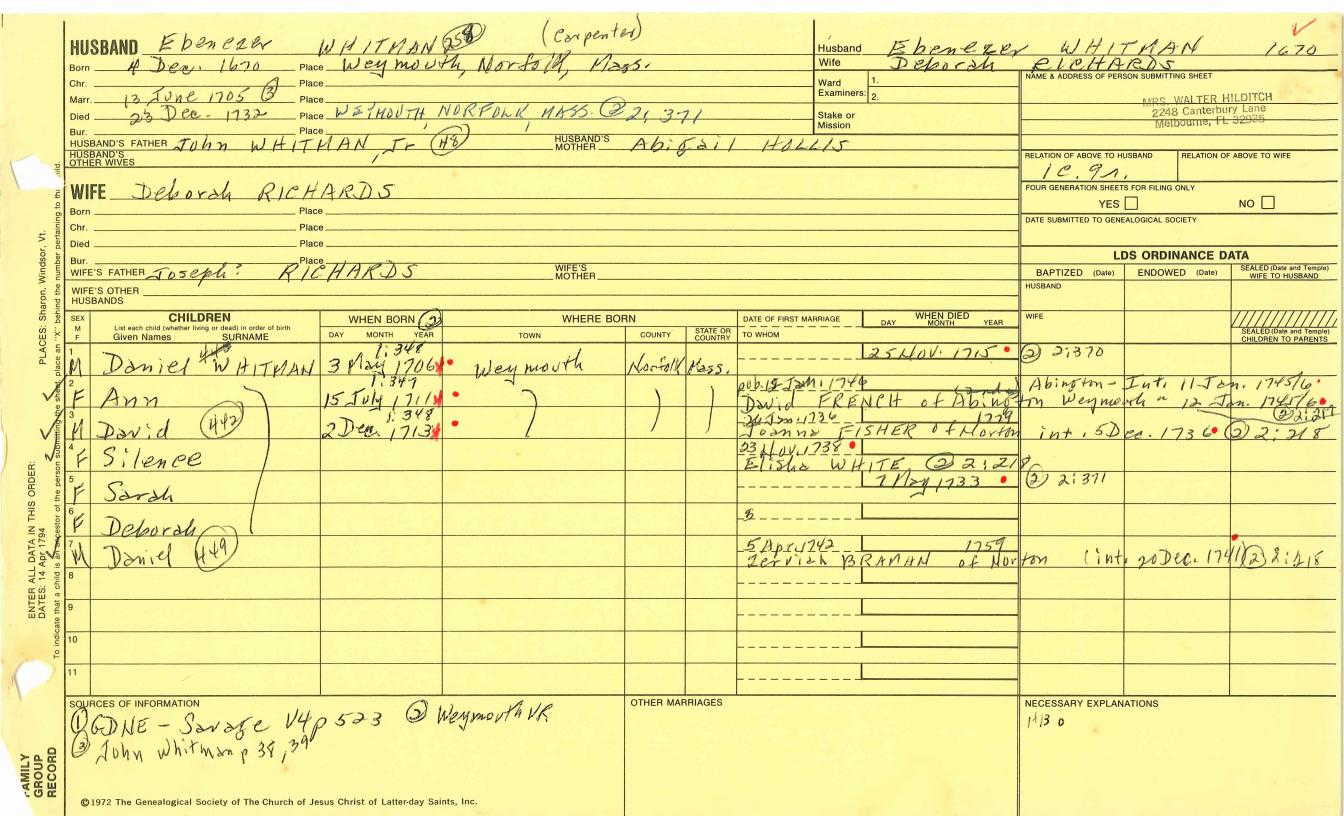 HUSBAND Ebenezer WHITMAN 258 (Carpenter)
Born 4 Dec. 1670 Place Weymouth, Norfolk, Mass.
Chr. Place
Marr. 13 June 1705 ③ Place
Died 23 Dec. 1732 Place WEYMOUTH, NORFOLK, MASS. ② 2; 371
Bur. Place
HUSBAND'S FATHER John WHITMAN, Jr 48 HUSBAND'S MOTHER Abigail HOLLIS
HUSBAND'S OTHER WIVES
WIFE Deborah RICHARDS
Born Place
Chr. Place
Died Place
Bur. Place
WIFE'S FATHER Joseph? RICHARDS WIFE'S MOTHER
WIFE'S OTHER HUSBANDS
Husband Ebenezer WHITMAN 1670
Wife Deborah RICHARDS
Ward Examiners: 1.
2.
Stake or Mission
NAME & ADDRESS OF PERSON SUBMITTING SHEET
MRS. WALTER HILDITCH
2248 Canterbury Lane
Melbourne, FL 32935
RELATION OF ABOVE TO HUSBAND RELATION OF ABOVE TO WIFE
1c. 9r.
FOUR GENERATION SHEETS FOR FILING ONLY
YES NO
DATE SUBMITTED TO GENEALOGICAL SOCIETY
LDS ORDINANCE DATA
BAPTIZED (Date) ENDOWED (Date) SEALED (Date and Temple) WIFE TO HUSBAND
HUSBAND
WIFE
SEALED (Date and Temple) CHILDREN TO PARENTS
SEX M F
CHILDREN
List each child (whether living or dead) in order of birth
Given Names SURNAME
WHEN BORN ②
DAY MONTH YEAR
WHERE BORN
TOWN COUNTY STATE OR COUNTRY
DATE OF FIRST MARRIAGE
TO WHOM
WHEN DIED
DAY MONTH YEAR
1 1:348 25 Nov. 1715 ② 2:370
M Daniel WHITMAN 3 May 1706 Weymouth Norfolk Mass.
2 1:347 pub. 12 Jan. 1746 Abington - Int. 11 Jan. 1745/6
F Ann 15 July 1711 David FRENCH of Abington Weymouth " 12 Jan. 1745/6
3 1:348 1736 1779
M David 442 2 Dec. 1713 Joanna FISHER of Norton int. 5 Dec. 1736 ② 2:218
4 23 Nov. 1738
F Silence Elisha WHITE ② 2:218
5 7 May 1733 ② 2:371
F Sarah
6
F Deborah
7 5 Apr. 1742 1759
M Daniel 449 Zerviah BRAMAN of Norton (int. 20 Dec. 1741) ② 2:218
8
9
10
11
SOURCES OF INFORMATION
① GDNE - Savage V4 p 523 ② Weymouth VR
③ John Whitman p 38, 39
OTHER MARRIAGES
NECESSARY EXPLANATIONS
©1972 The Genealogical Society of The Church of Jesus Christ of Latter-day Saints, Inc.
FAMILY GROUP RECORD
ENTER ALL DATA IN THIS ORDER:
DATES: 14 Apr 1794
PLACES: Sharon, Windsor, Vt.
To indicate that a child is an ancestor of the person submitting the sheet, place an "X" behind the number pertaining to that child.